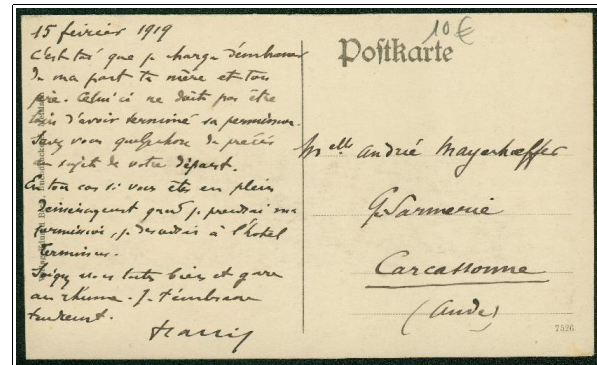 15 février 1919
C'est toi que je charge d'embrasser
de ma part ta mère et ton
père. Celui ci ne doit pas être
loin d'avoir terminé sa permission.
Savez vous quelque chose de précis
au sujet de votre départ.
En tou cas si vous êtes en plein
déménagement quand je prendrai ma
permission, je descendrai à l'hotel
Terminus.
Soignez vous tous bien et gare
au rhume. Je t'embrasse
tendrement.
10€
Postkarte
Melle André Mayerhœffer
Gendarmerie
Carcassonne
(Aude)
7526